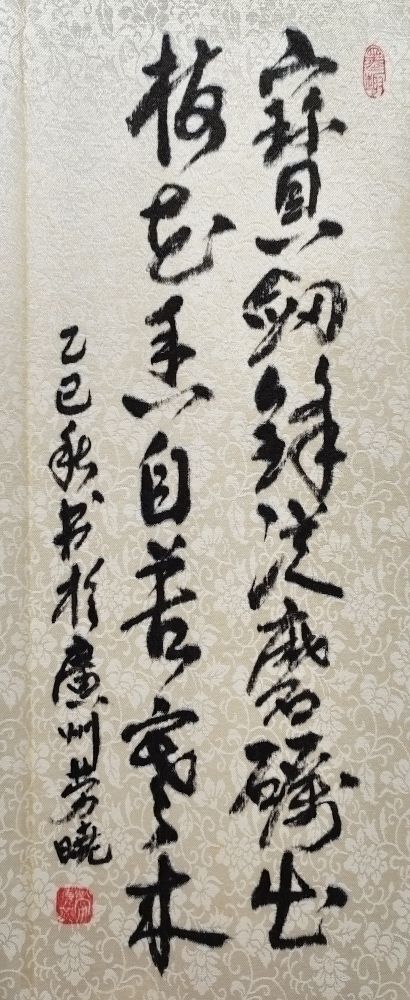 寶劍鋒從磨礪出
梅花香自苦寒来
乙巳秋书於廣州劳曉